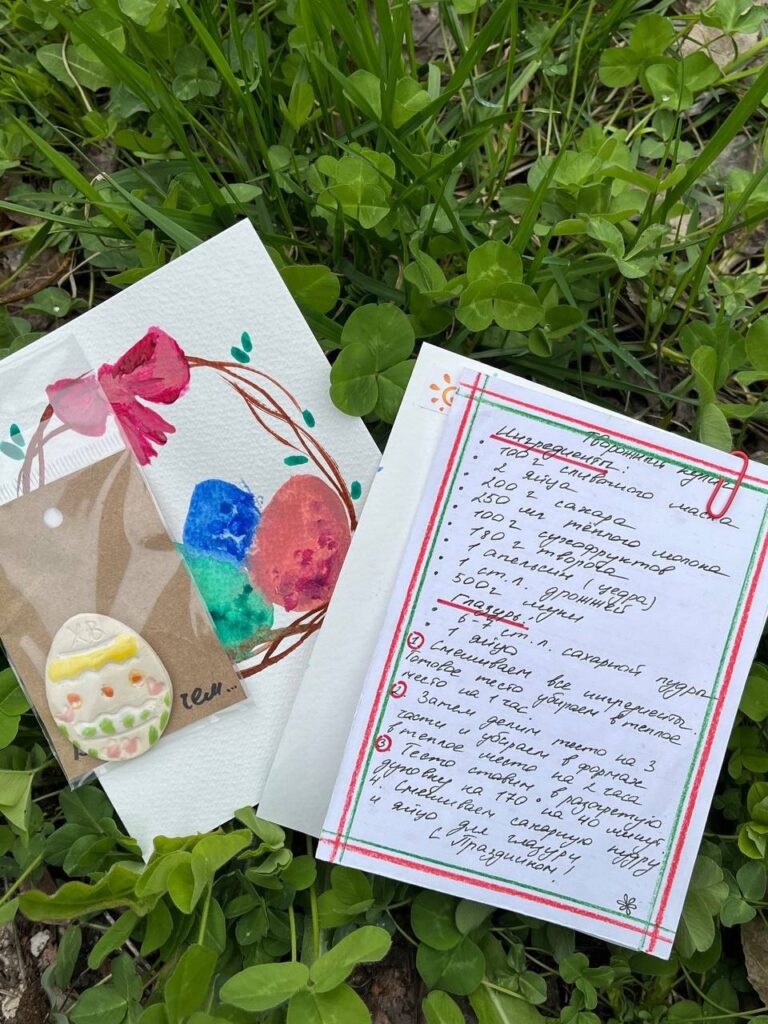 ХВ
чем...
Творожный кулич
Ингредиенты:
• 100 г сливочного масла
• 2 яйца
• 200 г сахара
• 250 мл тёплого молока
• 100 г сухофруктов
• 180 г творога
• 1 апельсин (цедра)
• 1 ст. л. дрожжей
• 500 г муки
Глазурь:
• 6-7 ст. л. сахарной пудры
• 1 яйцо
1 Смешиваем все ингредиенты.
Готовое тесто убираем в теплое
место на 1 час.
2 Затем делим тесто на 3
части и убираем в формах
в теплое место на 2 часа
3 Тесто ставим в разогретую
духовку на 170° на 40 минут
4. Смешиваем сахарную пудру
и яйцо для глазури
С Праздником!